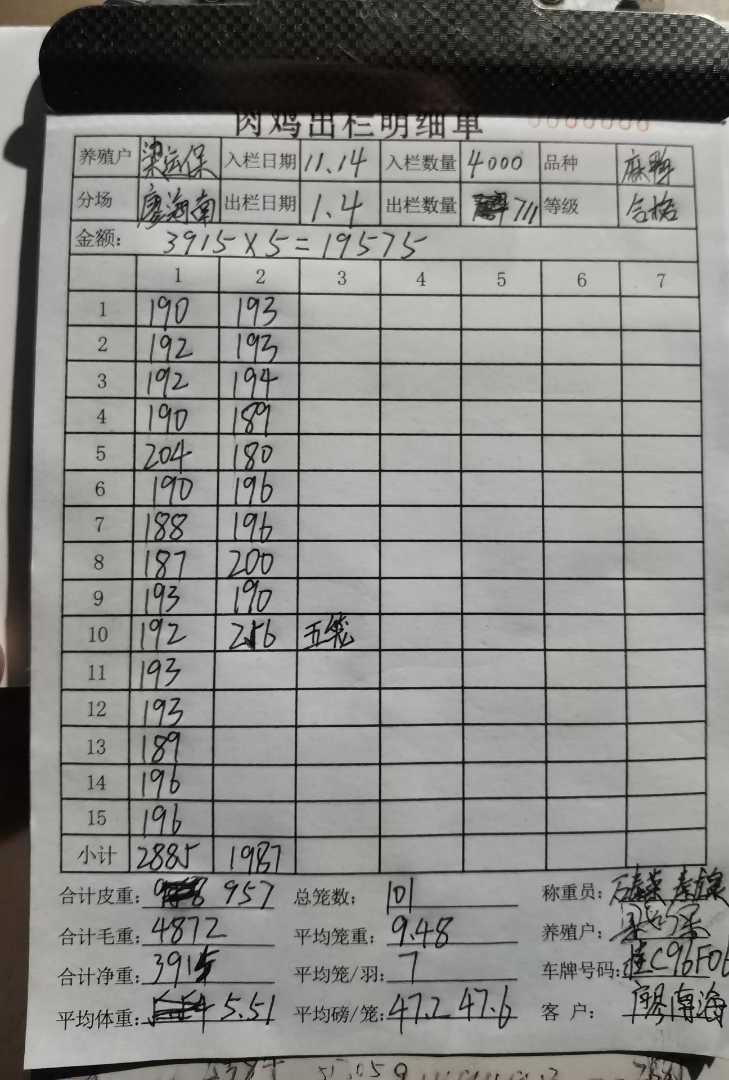 肉鸡出栏明细单
养殖户 梁运保 入栏日期 11.14 入栏数量 4000 品种 麻鸭
分场 廖海南 出栏日期 1.4 出栏数量 711 等级 合格
金额: 3915×5=19575
1 2 3 4 5 6 7
1 190 193
2 192 193
3 192 194
4 190 189
5 204 180
6 190 196
7 188 196
8 187 200
9 193 190
10 192 256 五笼
11 193
12 193
13 189
14 196
15 196
小计 2885 1987
合计皮重: 957 总笼数: 101 称重员:
合计毛重: 4872 平均笼重: 9.48 养殖户: 梁运保
合计净重: 3915 平均笼/羽: 7 车牌号码: 桂C96F06
平均体重: 5.51 平均磅/笼: 47.2 47.6 客 户: 廖南海